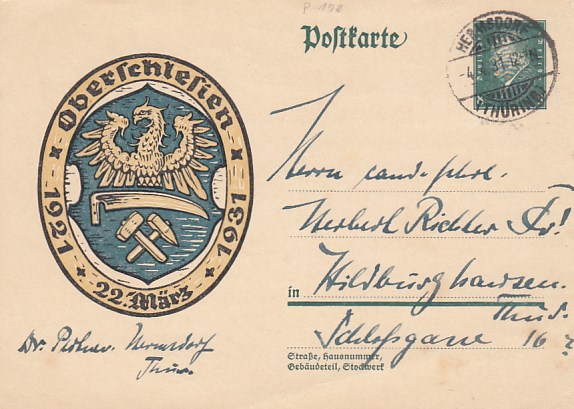 P-192
Postkarte
HERMSDORF
(THÜRING.)
Oberschlesien
1921
1931
22. März
Herrn cand.
Herbert Richter
in Hildburghausen
Thür.
Schloßgasse 16
Straße, Hausnummer,
Gebäudeteil, Stockwerk
Dr. Hermsdorf
Thür.